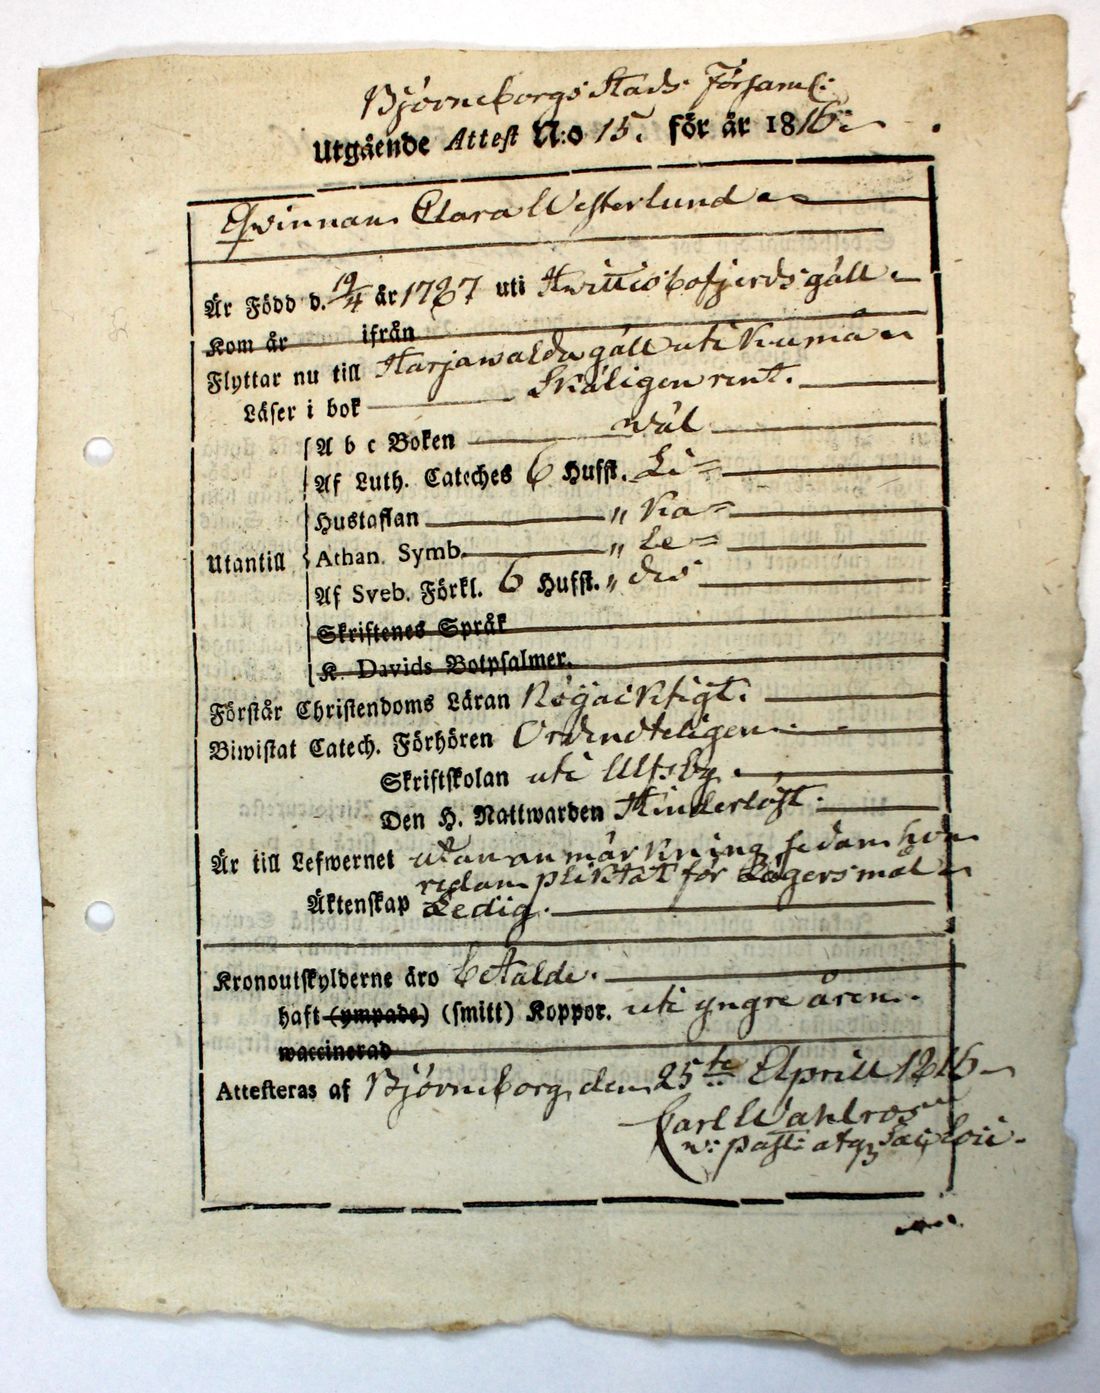 Björneborgs Stads Församl:
Utgående Attest N:o 15. för år 1816:
Qvinnan Clara Westerlund
Är Född d. 19/4 år 1787 uti Hvittisbofjerds gäll
Kom år ifrån
Flyttar nu till Harjawalda gäll uti Kumå
Läser i bok Skäligen rent.
A b c Boken wäl
Af Luth. Cateches 6 Hufst. Li=
Hustaflan „ ka=
Utantill Athan. Symb. „ Le=
Af Sveb. Förkl. 6 Hufst. „ des
Skriftenes Språk
K. Davids Botpsalmer.
Förstår Christendoms Läran Nöjacktigt.
Biwistat Catech. Förhören Ordendteligen
Skriftskolan uti Ulfsby.
Den H. Nattwarden Hinderlöst.
Är till Lefwernet utan anmärkning sedan hon
redan pliktat för Lägersmål
Äktenskap Ledig.
Kronoutskylderne äro betalde.
haft (ympade) (smitt) Koppor. uti yngre åren.
waccinerad
Attesteras af Björneborg, den 25te Aprill 1816
Carl Wahlroos
v: past: